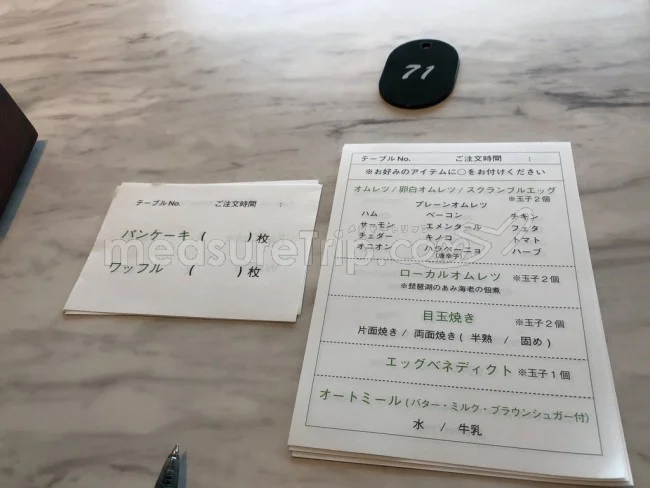 71
テーブルNo. ご注文時間 :
パンケーキ ( ) 枚
ワッフル ( ) 枚
テーブルNo. ご注文時間 :
※お好みのアイテムに○をお付けください
オムレツ / 卵白オムレツ / スクランブルエッグ
※玉子2個
プレーンオムレツ
ハム ベーコン チキン
サーモン エメンタール フェタ
チェダー キノコ トマト
オニオン ハラペーニョ ハーブ
(唐辛子)
ローカルオムレツ ※玉子2個
※琵琶湖のあみ海老の佃煮
目玉焼き ※玉子2個
片面焼き / 両面焼き ( 半熟 / 固め )
エッグベネディクト ※玉子1個
オートミール (バター・ミルク・ブラウンシュガー付)
水 / 牛乳
measureTrip.com